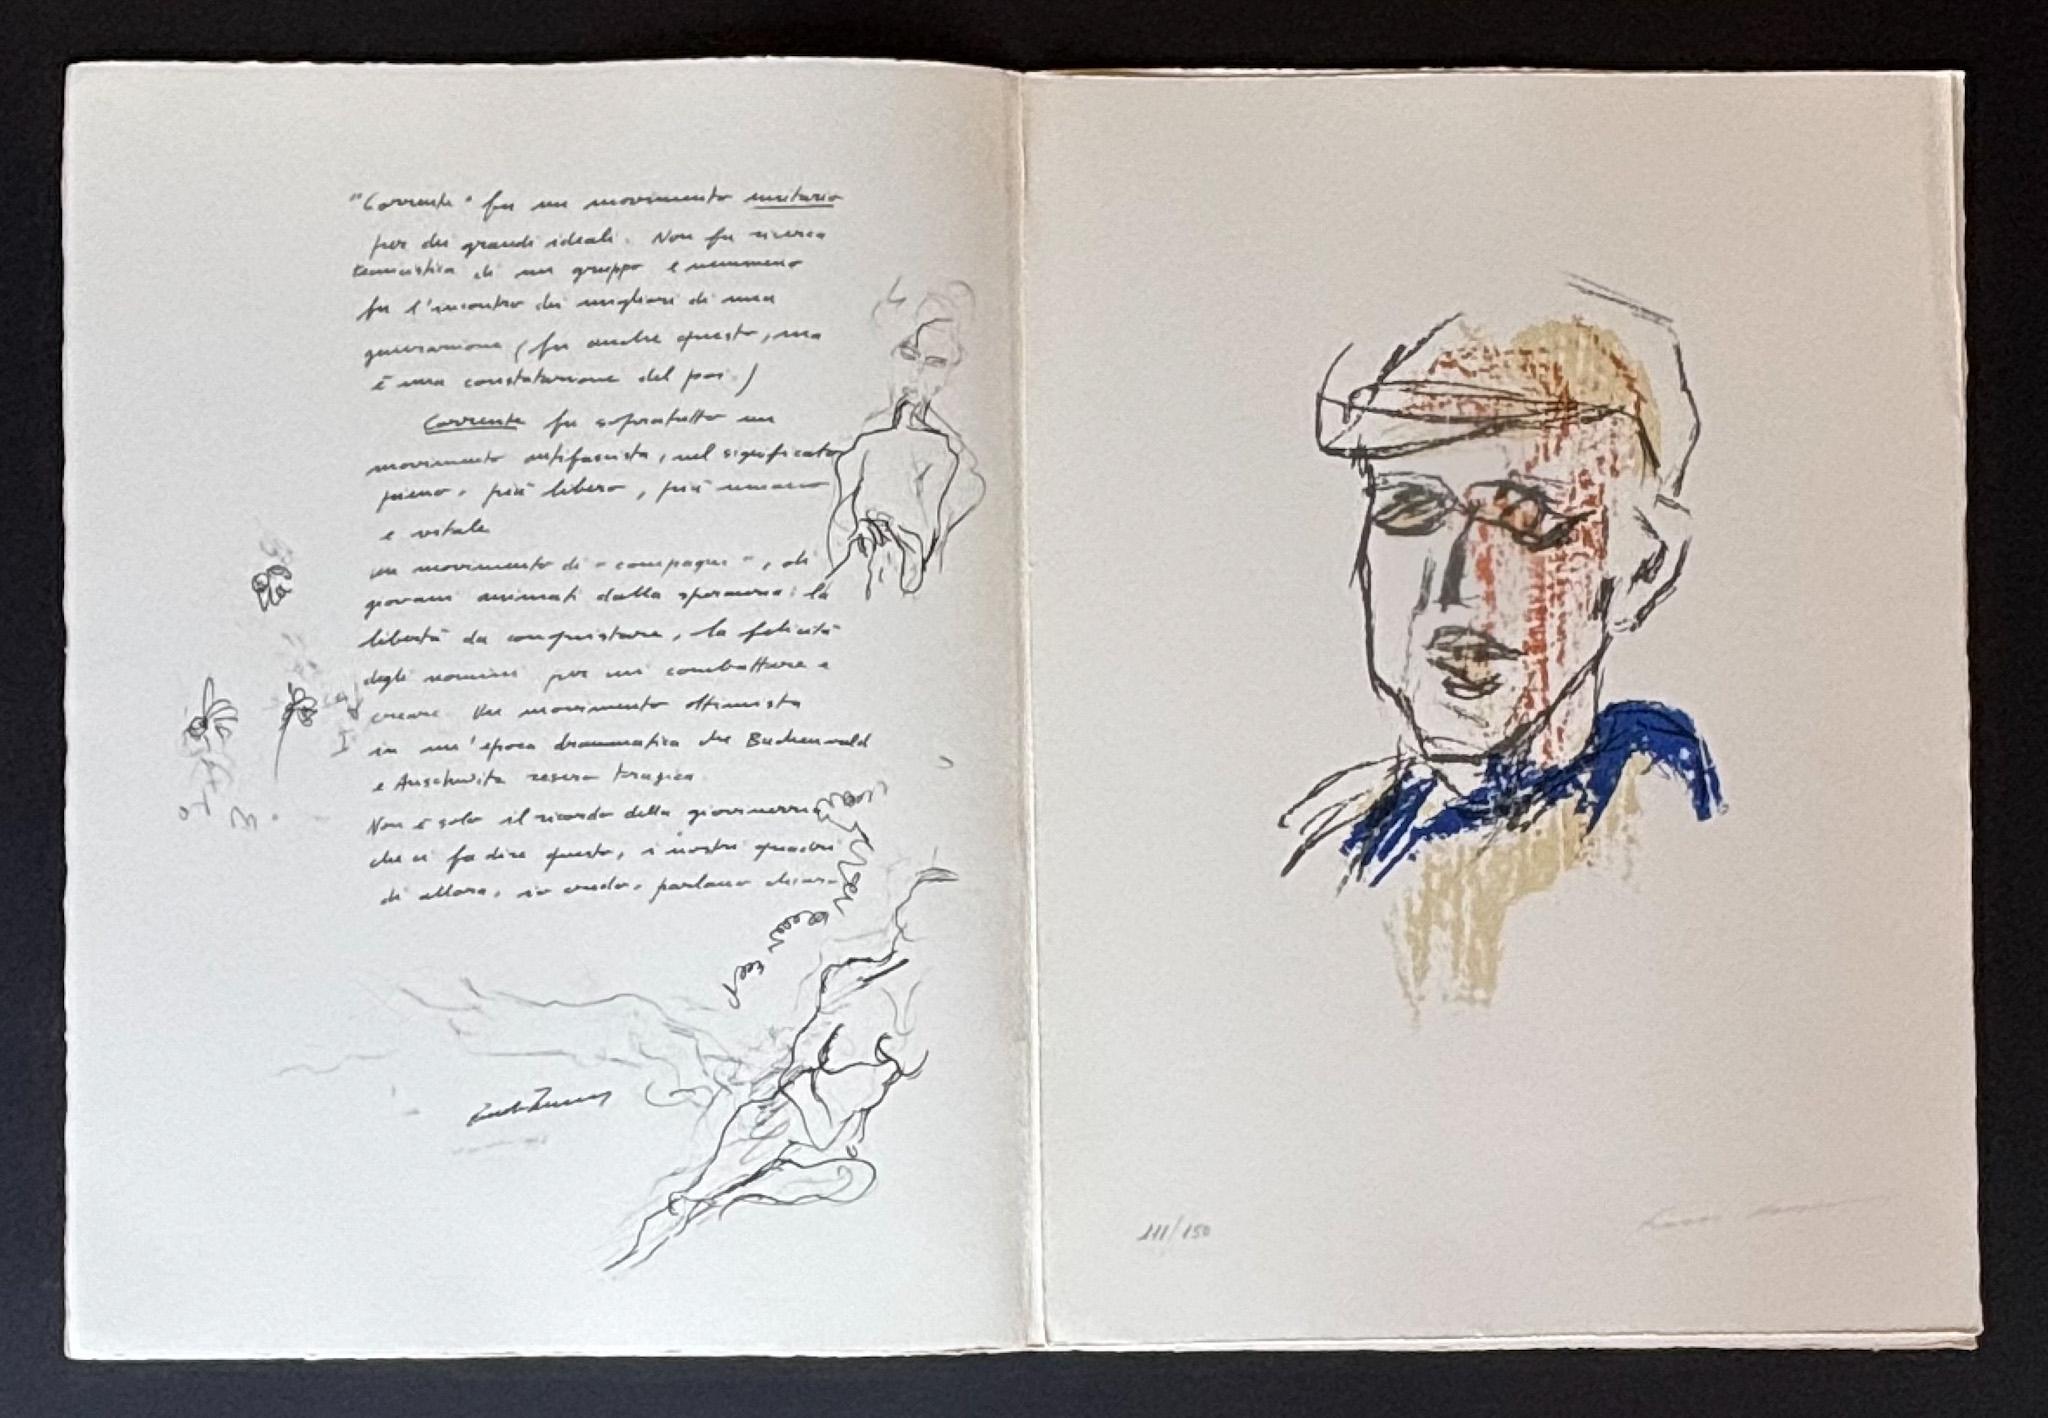 "Corrente" fu un movimento unitario
per dei grandi ideali. Non fu ricerca
di un gruppo e nemmeno
fu l'incontro dei migliori di una
generazione (fu anche questo, ma
è una constatazione del poi.)
Corrente fu sopratutto un
movimento antifascista, nel significato
pieno, più libero, più umano
e vitale
un movimento di "compagni", di
giovani animati dalla speranza: la
libertà da conquistare, la felicità
degli uomini per cui combattere e
creare. Un movimento ottimista
in un'epoca drammatica che Buchenwald
e Auschwitz resero tragica.
Non è solo il ricordo della giovinezza
che ci fa dire questo, i nostri quadri
di allora, io credo, parlano chiaro
111/150